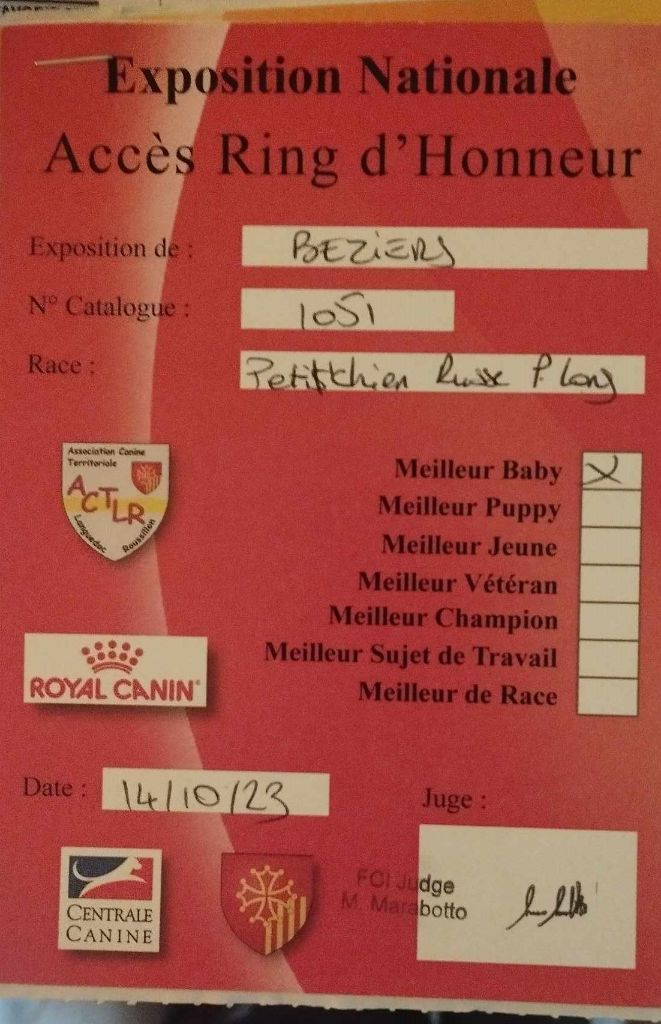 Exposition Nationale
Accès Ring d'Honneur
Exposition de : BEZIERS
N° Catalogue : 1051
Race : Petit Chien Russe P. Long
Association Canine
Territoriale
ACTLR
Languedoc Roussillon
Meilleur Baby X
Meilleur Puppy
Meilleur Jeune
Meilleur Vétéran
Meilleur Champion
Meilleur Sujet de Travail
Meilleur de Race
ROYAL CANIN
Date : 14/10/23
Juge :
FCI Judge
M. Marabotto
CENTRALE
CANINE